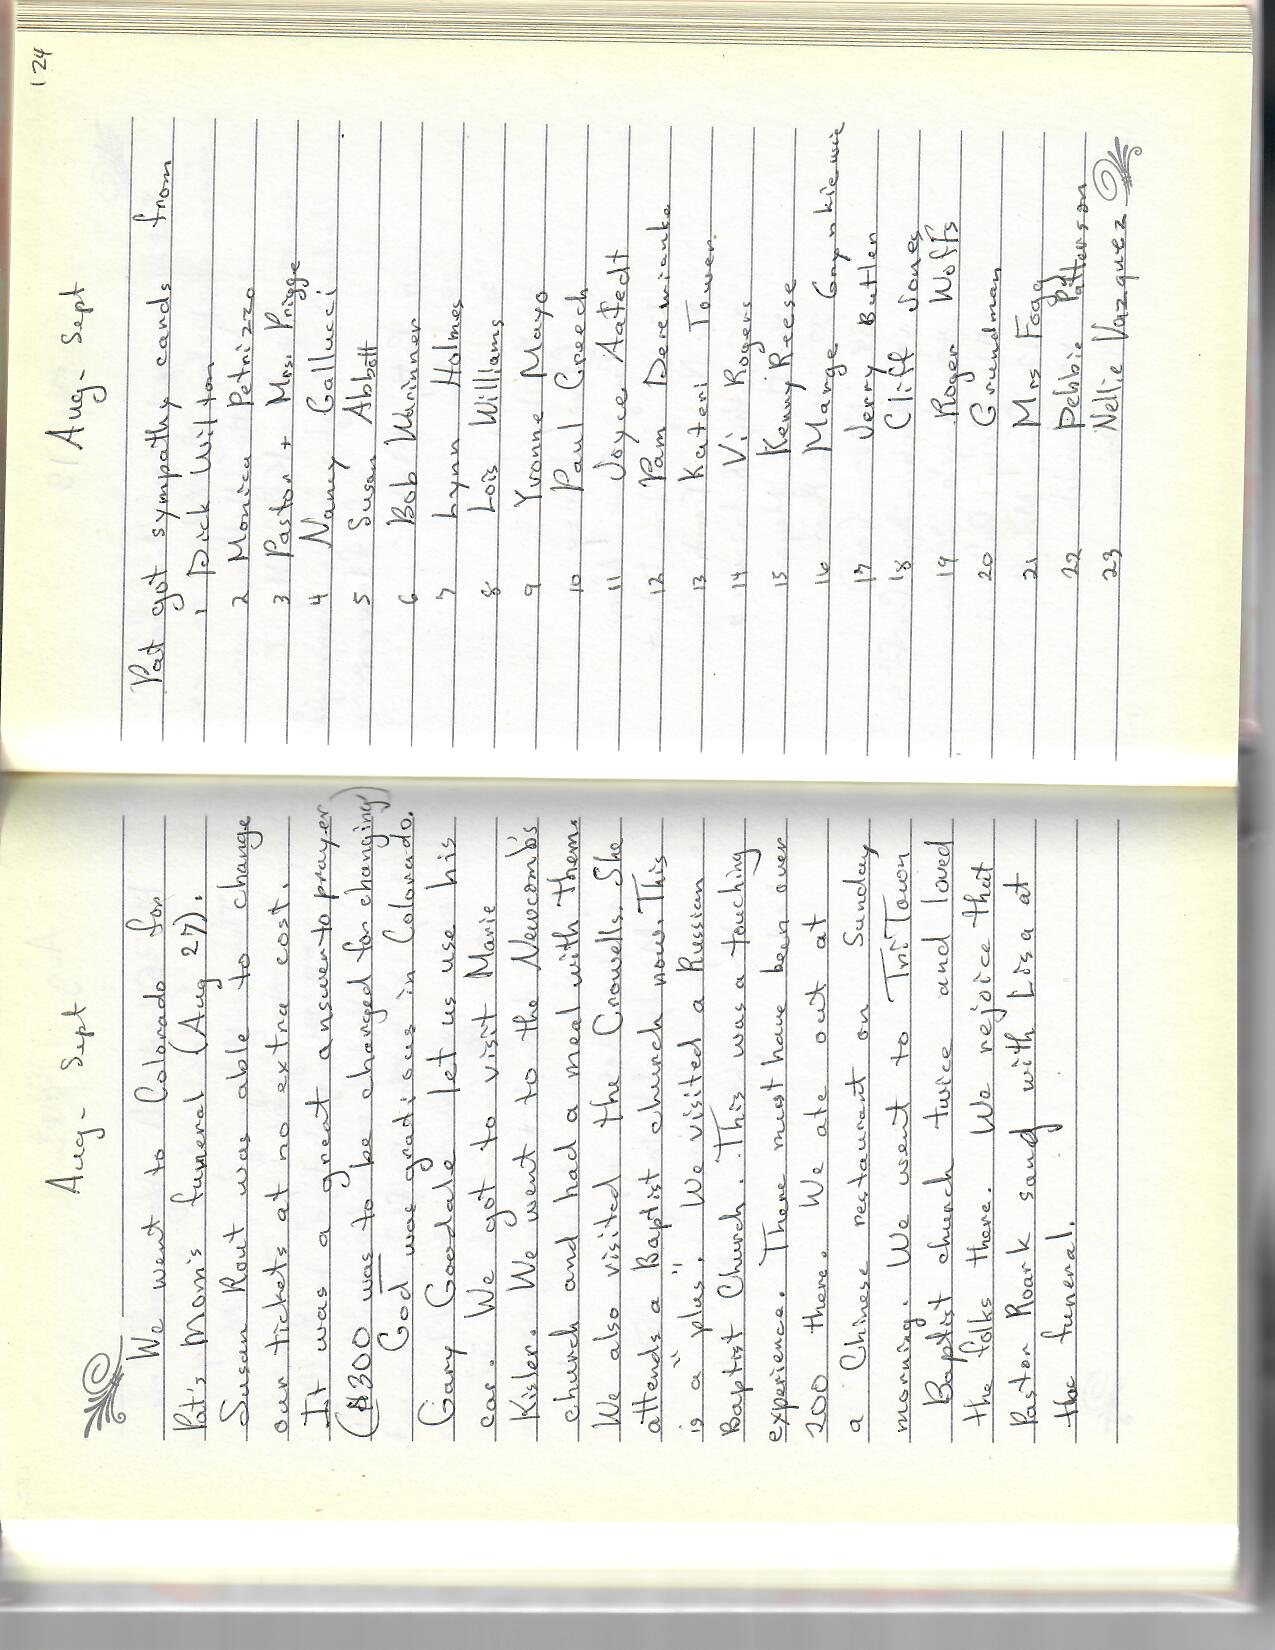 Aug - Sept
We went to Colorado for
Pat's Mom's funeral (Aug 27).
Susan Rout was able to change
our tickets at no extra cost.
It was a great answer to prayer
($300 was to be charged for changing)
God was gracious in Colorado.
Gary Goodale let us use his
car. We got to visit Marie
Kisler. We went to the Newcomb's
church and had a meal with them.
We also visited the Crowells. She
attends a Baptist church now. This
is a "plus". We visited a Russian
Baptist Church. This was a touching
experience. There must have been over
200 there. We ate out at
a Chinese restaurant on Sunday
morning. We went to Tri Town
Baptist church twice and loved
the folks there. We rejoice that
Pastor Roark sang with Lisa at
the funeral.
124
Aug - Sept
Pat got sympathy cards from
1 Dick Wilton
2 Monica Petrizzo
3 Pastor + Mrs. Prigge
4 Nancy Gallucci
5 Susan Abbott
6 Bob Wariner
7 Lynn Holmes
8 Lois Williams
9 Yvonne Mayo
10 Paul Creech
11 Joyce Aafedt
12 Pam Deremianko
13 Kateri Tower
14 Vi Rogers
15 Kenny Reese
16 Marge
17 Jerry Butler
18 Cliff Jones
19 Roger Wolfs
20 Grundman
21 Mrs Fogg
22 Debbie Patterson
23 Nellie Vazquez